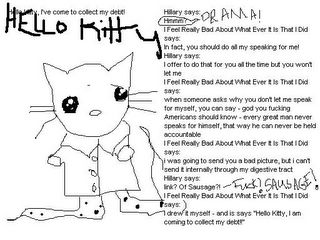 Hello Kitty, I've come to collect my debt!
HELLO KITTY
Hillary says:
Hmmm?
DRAMA!
I Feel Really Bad About What Ever It Is That I Did
says:
In fact, you should do all my speaking for me!
Hillary says:
I offer to do that for you all the time but you won't
let me
I Feel Really Bad About What Ever It Is That I Did
says:
when someone asks why you don't let me speak
for myself, you can say - god you fucking
Americans should know - every great man never
speaks for himself, that way he can never be held
accountable
I Feel Really Bad About What Ever It Is That I Did
says:
i was going to send you a bad picture, but i can't
send it internally through my digestive tract
Hillary says:
link? Of Sausage?!
FUCK! SAUSAGE!
I Feel Really Bad About What Ever It Is That I Did
says:
I drew it myself - and is says "Hello Kitty, I am
coming to collect my debt!"